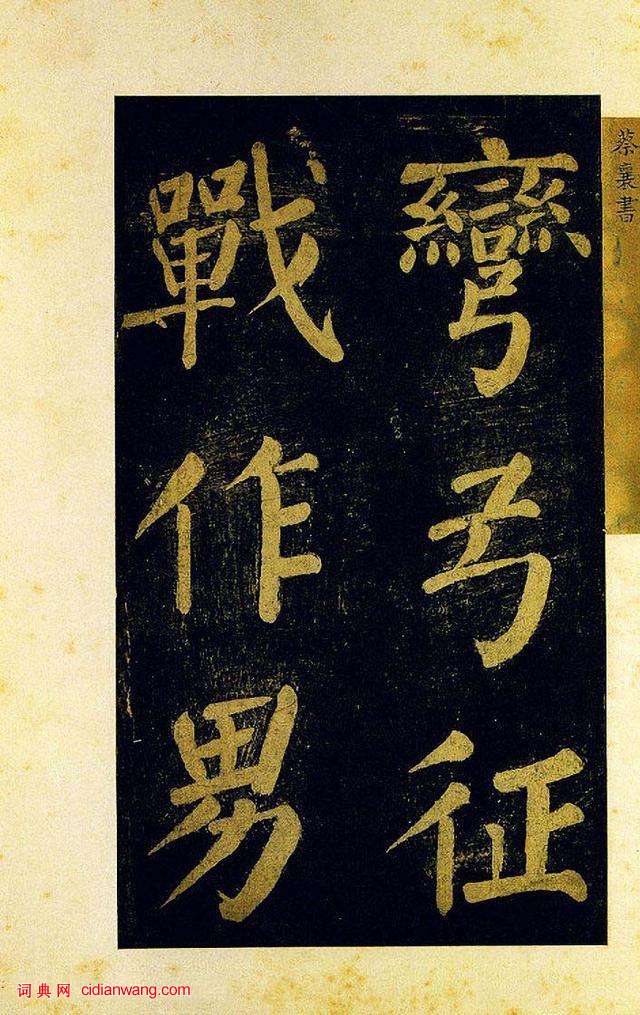 蔡襄書
彎弓征
戰作男
词典网 cidianwang.com